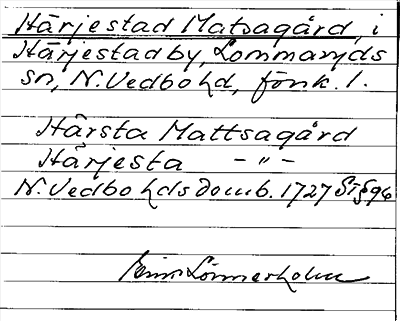 Härjestad Matsagård, i
Härjestad by, Lommaryds
sn, N. Vedbo hd, Jönk. l.
Härsta Mattsagård
Härjesta - " -
N. Vedbo hds domb. 1727 St § 96